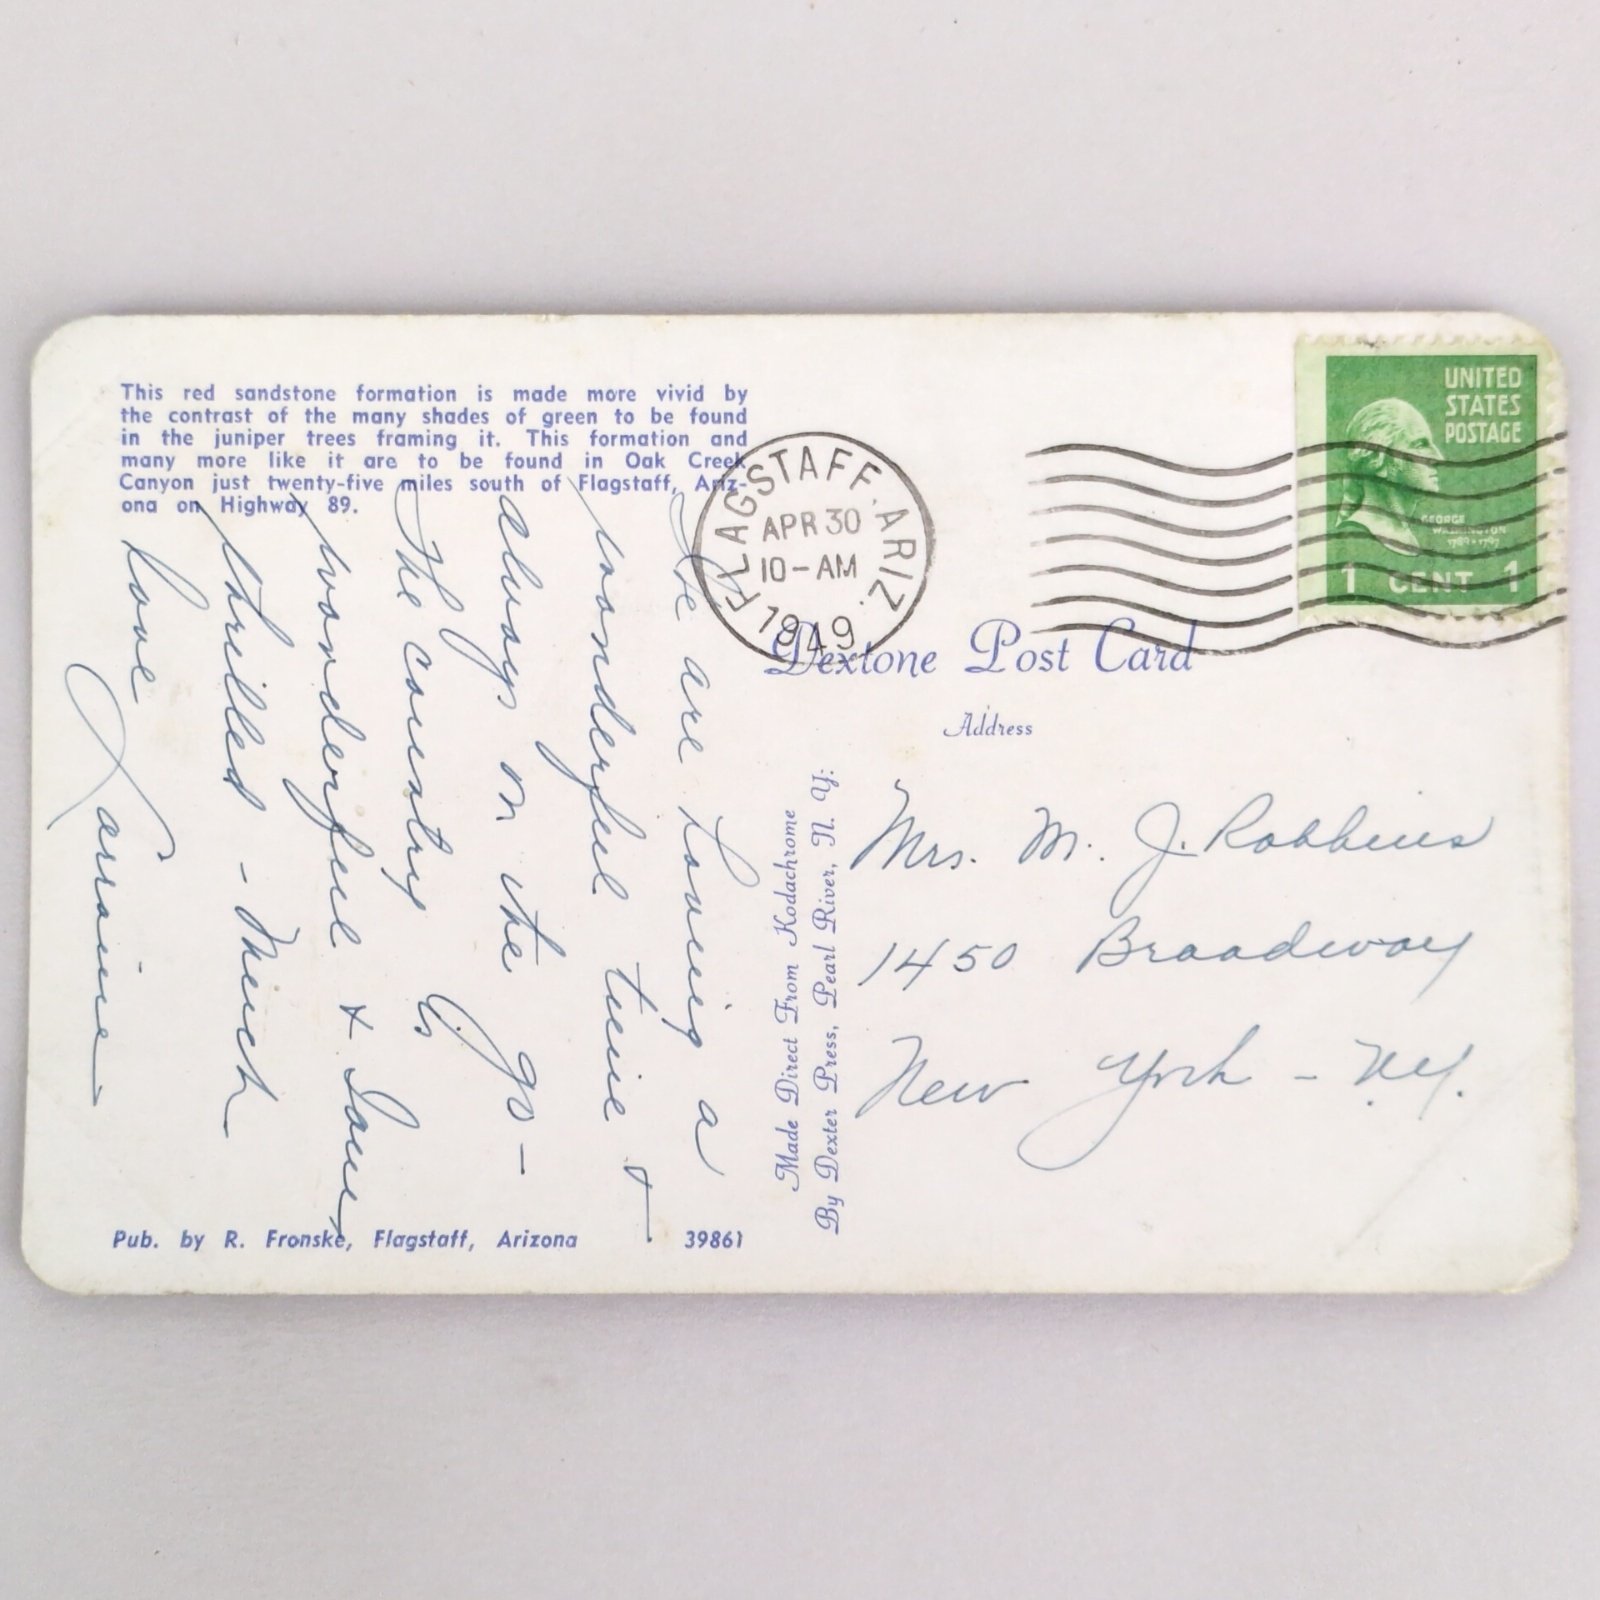 This red sandstone formation is made more vivid by
the contrast of the many shades of green to be found
in the juniper trees framing it. This formation and
many more like it are to be found in Oak Creek
Canyon just twenty-five miles south of Flagstaff, Ariz-
ona on Highway 89.
We are having a
wonderful time &
always on the go -
The country is
wonderful &
thrilled - Much
love
Larraine
Pub. by R. Fronske, Flagstaff, Arizona
39861
Made Direct From Kodachrome
By Dexter Press, Pearl River, N. Y.
FLAGSTAFF. ARIZ.
APR 30
10-AM
1949
UNITED
STATES
POSTAGE
GEORGE
WASHINGTON
1789-1797
1 CENT 1
Dextone Post Card
Address
Mrs. M. J. Robbins
1450 Broadway
New York - N.Y.